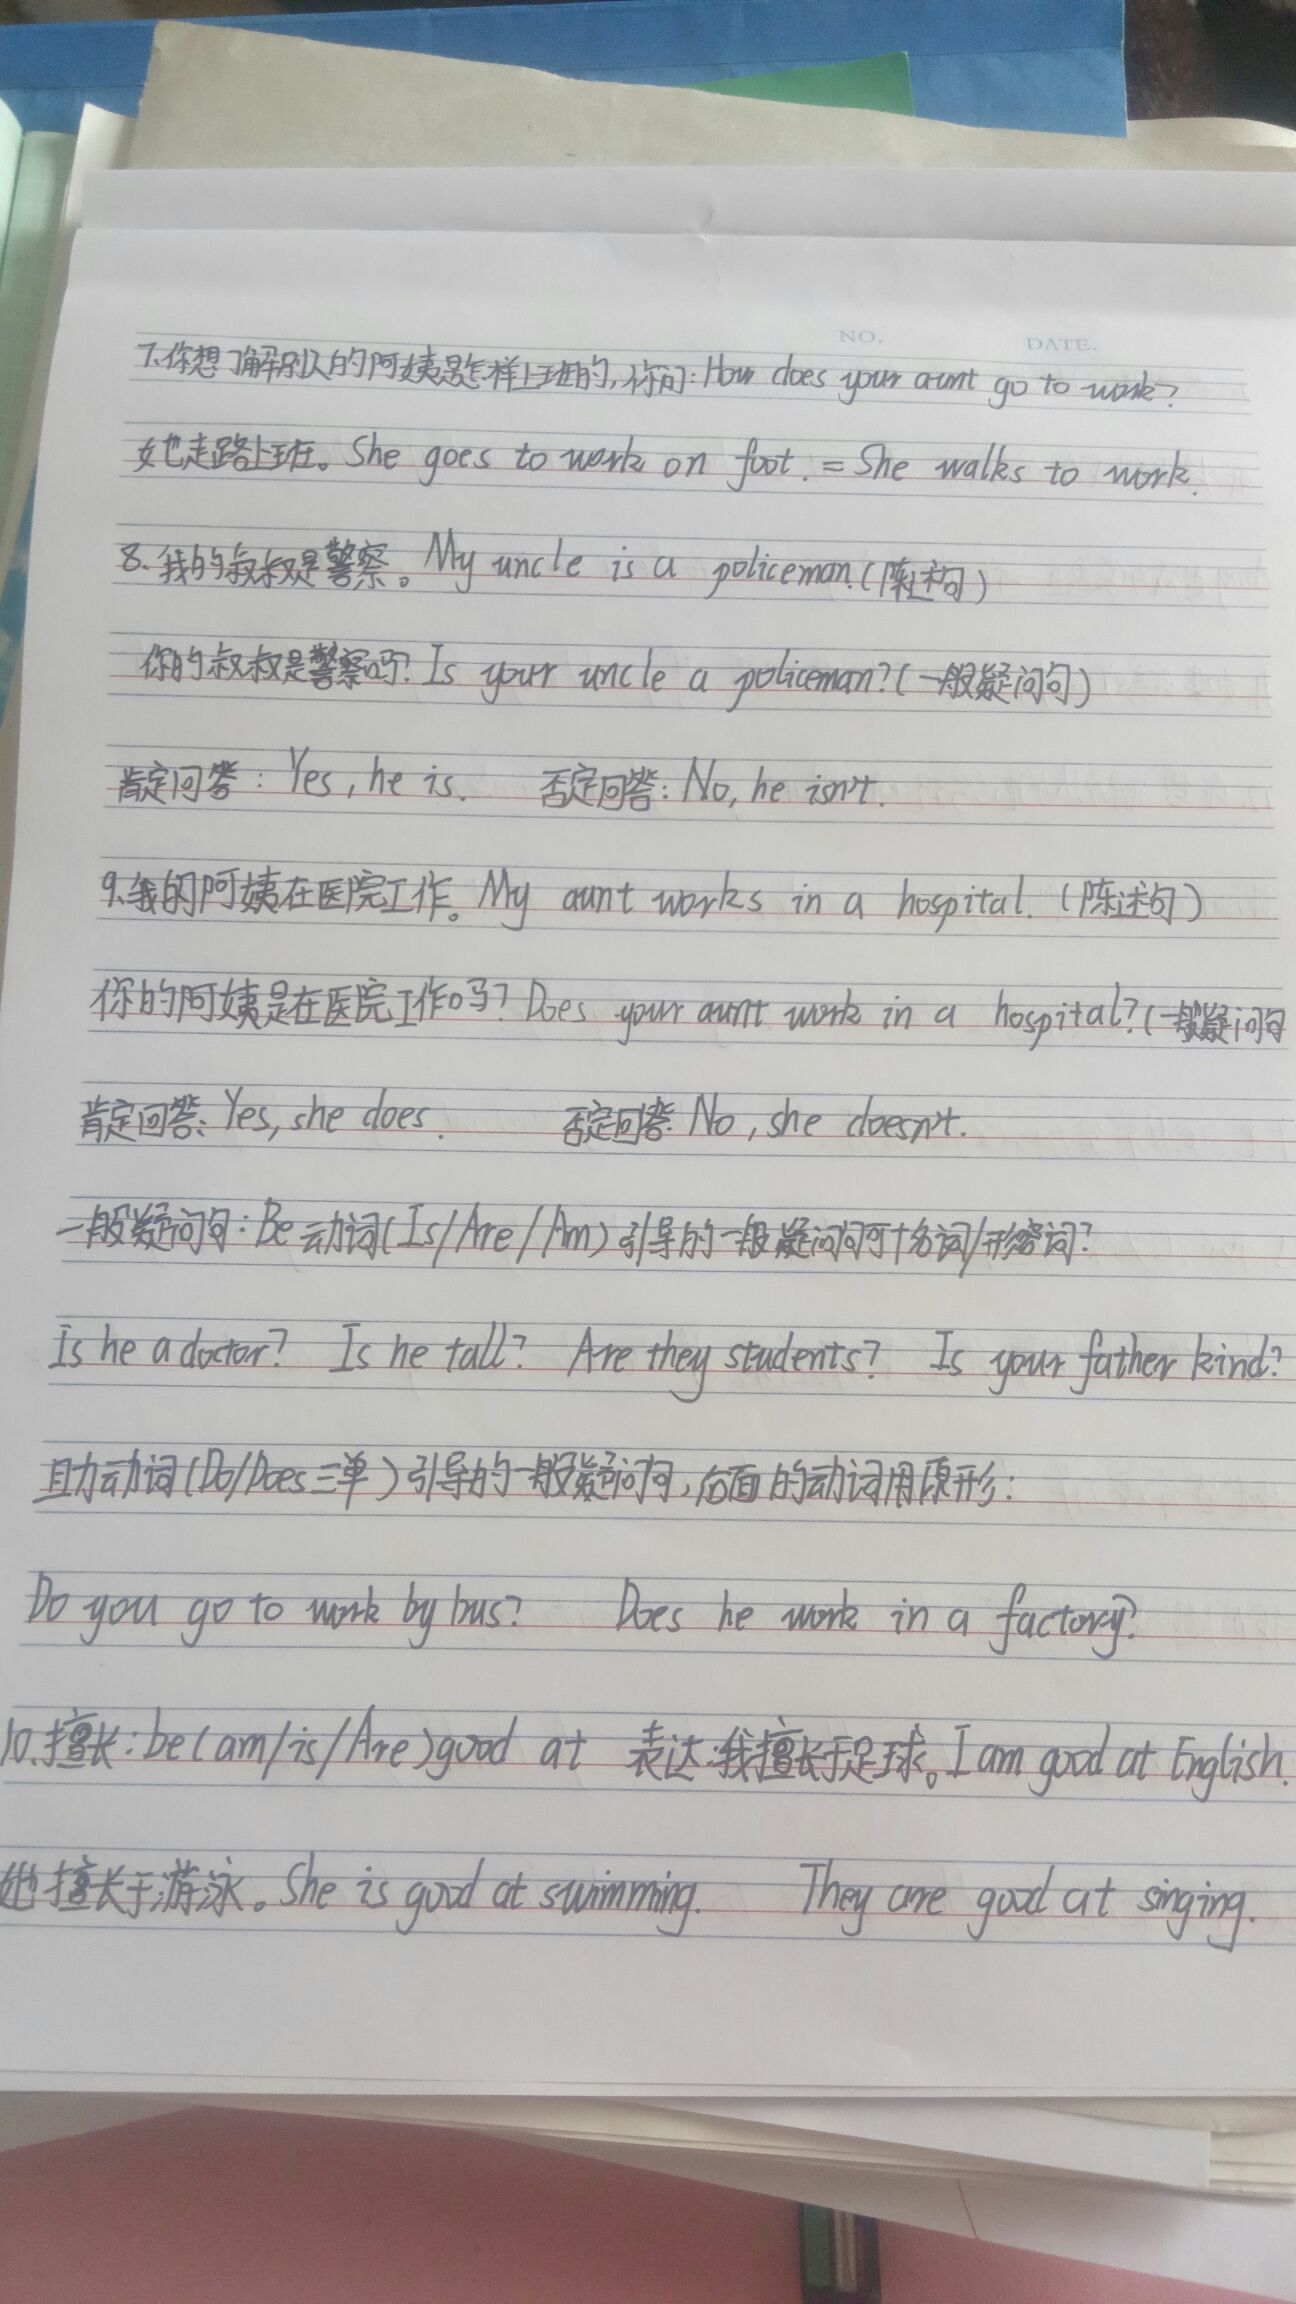 NO. DATE.
7.你想了解别人的阿姨是怎样上班的,你问:How does your aunt go to work?
她走路上班。She goes to work on foot.=She walks to work.
8.我的叔叔是警察。My uncle is a policeman.(陈述句)
你的叔叔是警察吗?Is your uncle a policeman?(一般疑问句)
肯定回答:Yes,he is. 否定回答:No,he isn't.
9.我的阿姨在医院工作。My aunt works in a hospital.(陈述句)
你的阿姨是在医院工作吗?Does your aunt work in a hospital?(一般疑问句
肯定回答:Yes,she does. 否定回答:No,she doesn't.
一般疑问句:Be动词(Is/Are/Am)引导的一般疑问句可+名词/形容词?
Is he a doctor? Is he tall? Are they students? Is your father kind?
助动词(Do/Does三单)引导的一般疑问句,后面的动词用原形:
Do you go to work by bus? Does he work in a factory?
10.擅长:be(am/is/Are)good at 表达:我擅长于足球。I am good at English.
她擅长于游泳。She is good at swimming. They are good at singing.